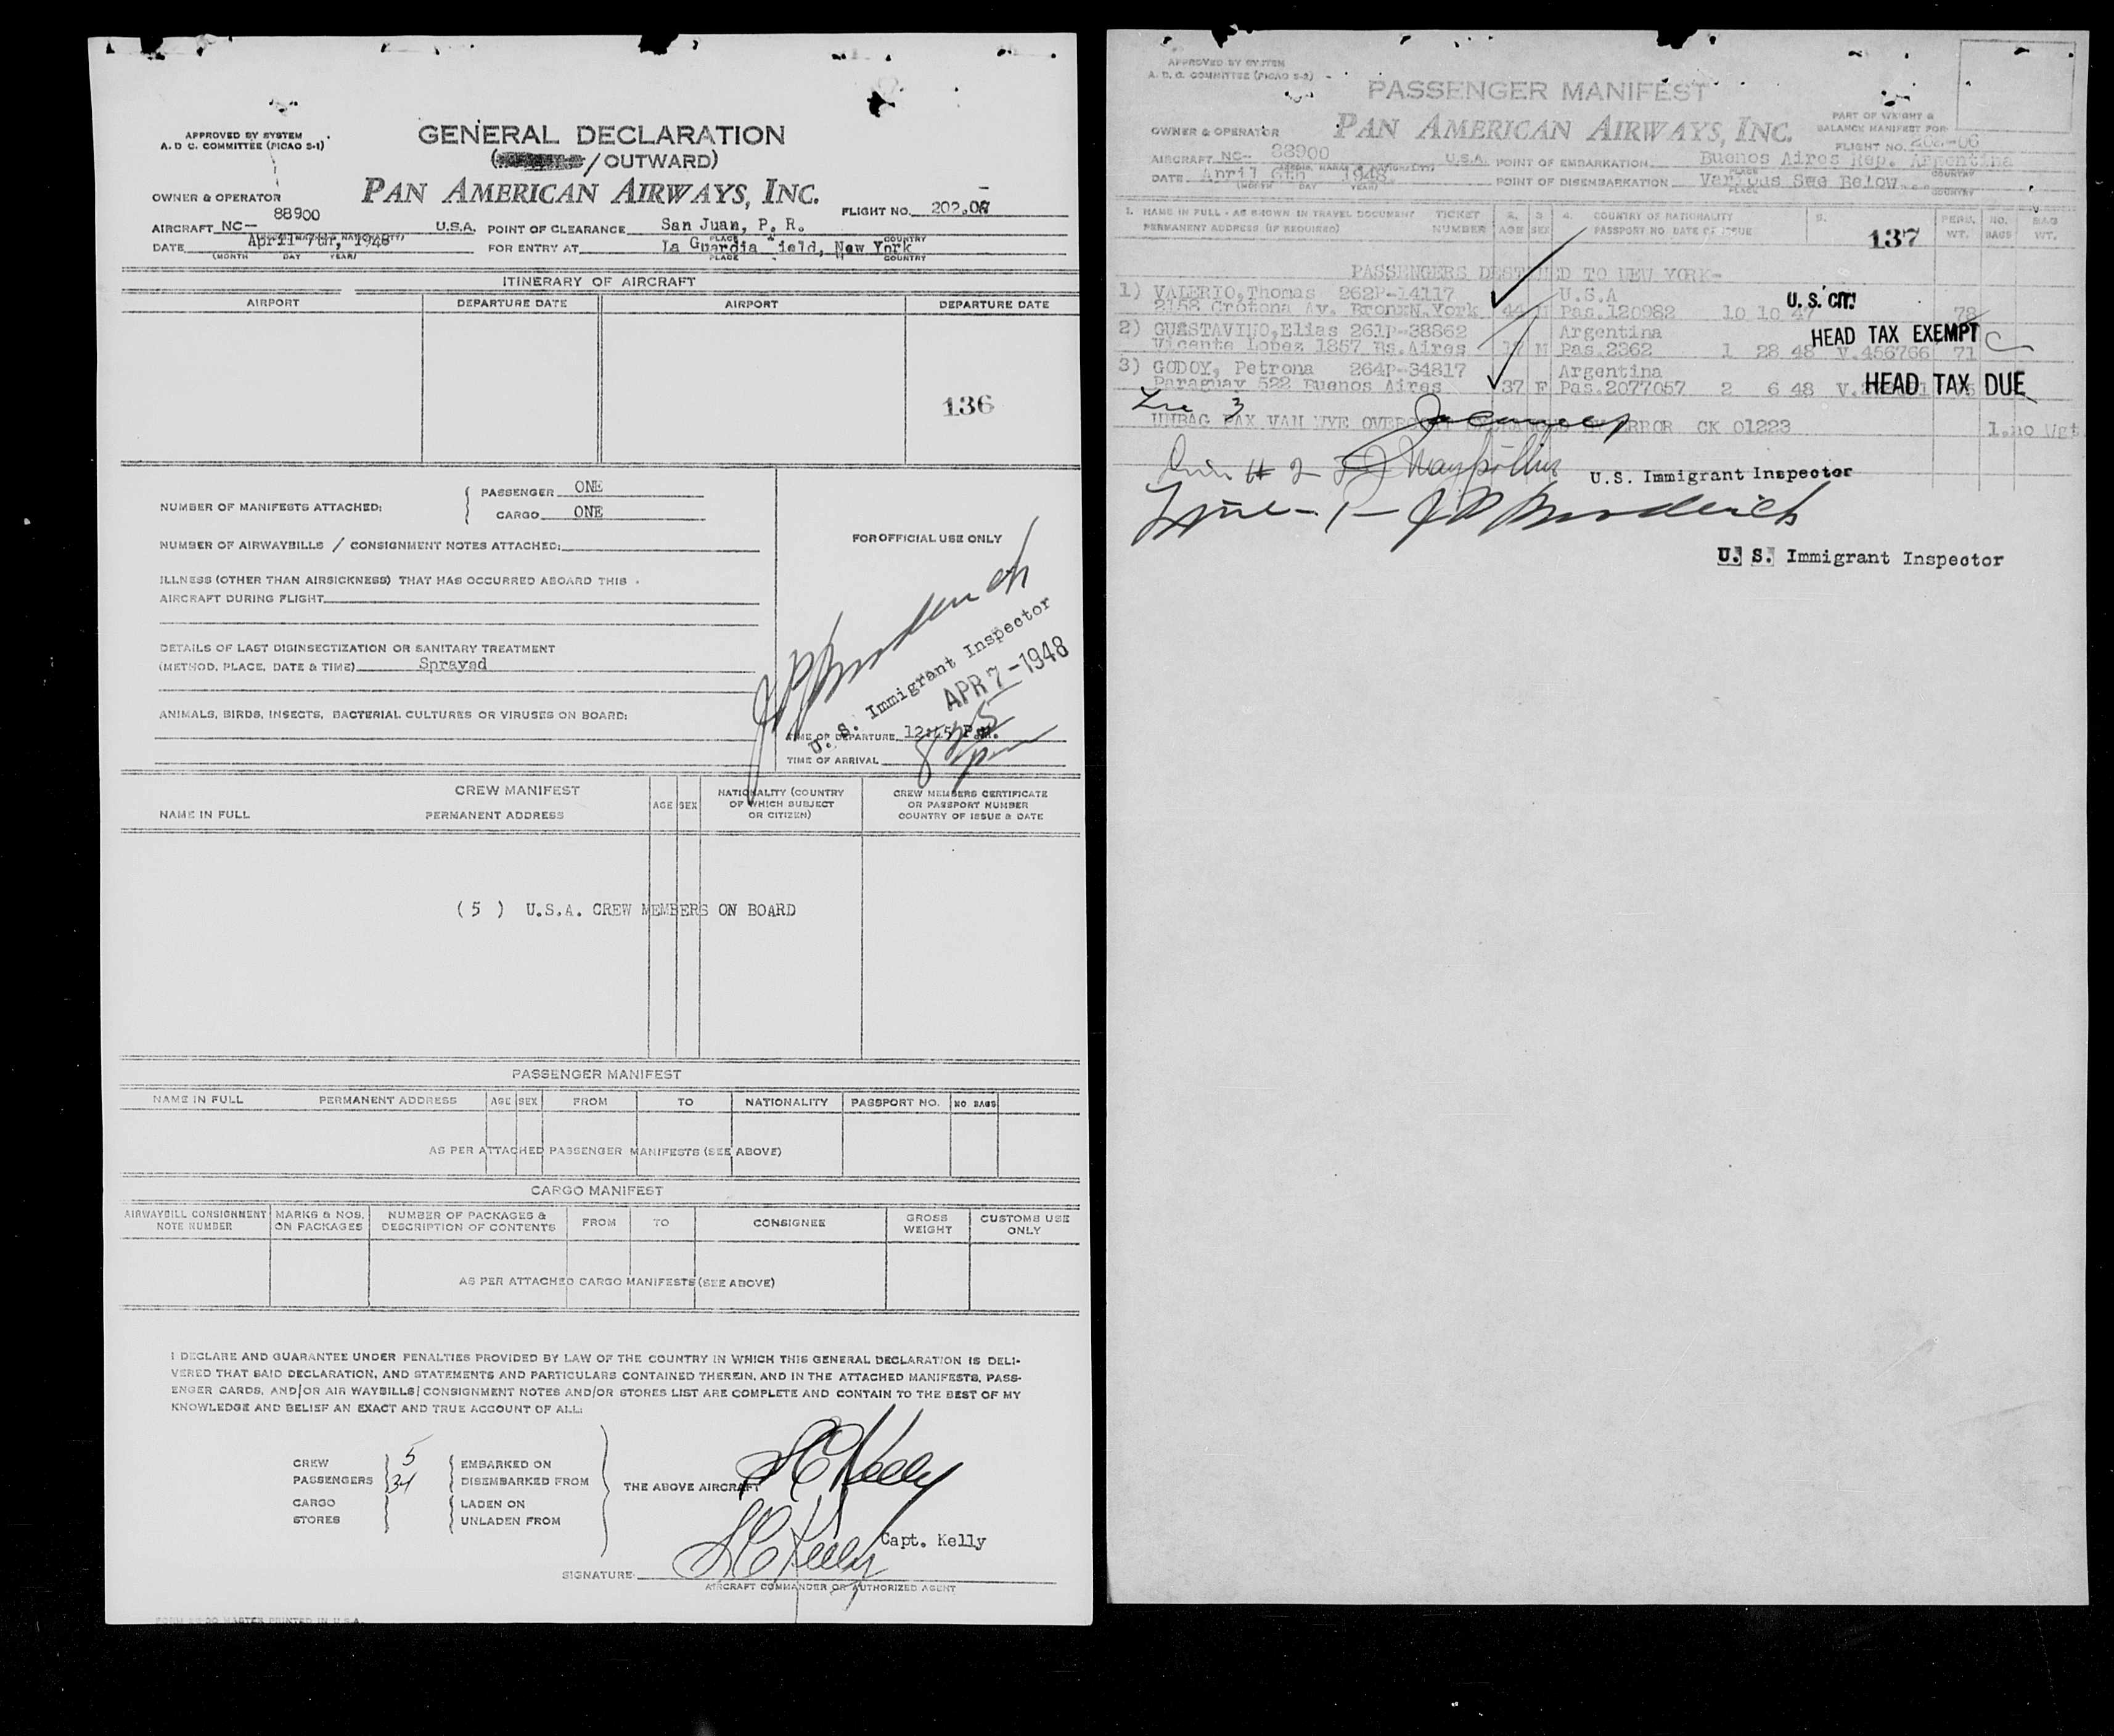 APPROVED BY SYSTEM
A. D. C. COMMITTEE (PICAO S-1)
GENERAL DECLARATION
( /OUTWARD)
PAN AMERICAN AIRWAYS, INC.
OWNER & OPERATOR
FLIGHT NO. 202.0
88900
AIRCRAFT NC— U.S.A. POINT OF CLEARANCE San Juan, P. R.
PLACE COUNTRY
DATE April 7th, 1948 FOR ENTRY AT La Guardia ield, New York
(MONTH DAY YEAR) PLACE COUNTRY
ITINERARY OF AIRCRAFT
AIRPORT DEPARTURE DATE AIRPORT DEPARTURE DATE
136
NUMBER OF MANIFESTS ATTACHED: PASSENGER ONE
CARGO ONE
NUMBER OF AIRWAYBILLS / CONSIGNMENT NOTES ATTACHED:
ILLNESS (OTHER THAN AIRSICKNESS) THAT HAS OCCURRED ABOARD THIS
AIRCRAFT DURING FLIGHT
DETAILS OF LAST DISINSECTIZATION OR SANITARY TREATMENT
(METHOD, PLACE, DATE & TIME) Sprayed
ANIMALS, BIRDS, INSECTS, BACTERIAL CULTURES OR VIRUSES ON BOARD:
FOR OFFICIAL USE ONLY
J P Broderick
U. S. Immigrant Inspector
APR 7-1948
TIME OF DEPARTURE 12:15 P.m.
TIME OF ARRIVAL 8 25 pm
CREW MANIFEST
NAME IN FULL PERMANENT ADDRESS AGE SEX NATIONALITY (COUNTRY OF WHICH SUBJECT OR CITIZEN) CREW MEMBERS CERTIFICATE OR PASSPORT NUMBER COUNTRY OF ISSUE & DATE
( 5 ) U.S.A. CREW MEMBERS ON BOARD
PASSENGER MANIFEST
NAME IN FULL PERMANENT ADDRESS AGE SEX FROM TO NATIONALITY PASSPORT NO. NO BAGS
AS PER ATTACHED PASSENGER MANIFESTS (SEE ABOVE)
CARGO MANIFEST
AIRWAYBILL CONSIGNMENT NOTE NUMBER MARKS & NOS. ON PACKAGES NUMBER OF PACKAGES & DESCRIPTION OF CONTENTS FROM TO CONSIGNEE GROSS WEIGHT CUSTOMS USE ONLY
AS PER ATTACHED CARGO MANIFESTS (SEE ABOVE)
I DECLARE AND GUARANTEE UNDER PENALTIES PROVIDED BY LAW OF THE COUNTRY IN WHICH THIS GENERAL DECLARATION IS DELI-
VERED THAT SAID DECLARATION, AND STATEMENTS AND PARTICULARS CONTAINED THEREIN, AND IN THE ATTACHED MANIFESTS, PASS-
ENGER CARDS, AND/OR AIR WAYBILLS/CONSIGNMENT NOTES AND/OR STORES LIST ARE COMPLETE AND CONTAIN TO THE BEST OF MY
KNOWLEDGE AND BELIEF AN EXACT AND TRUE ACCOUNT OF ALL:
CREW 5 EMBARKED ON
PASSENGERS 31 DISEMBARKED FROM
THE ABOVE AIRCRAFT
CARGO LADEN ON
STORES UNLADEN FROM
Kelly
Capt. Kelly
SIGNATURE: Kelly
AIRCRAFT COMMANDER OR AUTHORIZED AGENT
MASTER PRINTED IN U.S.A.
APPROVED BY SYSTEM
A. D. C. COMMITTEE (PICAO S-2)
PASSENGER MANIFEST
PAN AMERICAN AIRWAYS, INC.
OWNER & OPERATOR
PART OF WEIGHT &
BALANCE MANIFEST FOR
FLIGHT NO. 202-06
AIRCRAFT NC— 88900 U.S.A. POINT OF EMBARKATION Buenos Aires Rep. Argentina
PLACE COUNTRY
DATE April 6th 1948 POINT OF DISEMBARKATION Various See Below
(MONTH DAY YEAR) PLACE COUNTRY
1. NAME IN FULL - AS SHOWN IN TRAVEL DOCUMENT PERMANENT ADDRESS (IF REQUIRED) TICKET NUMBER 2. AGE 3 SEX 4. COUNTRY OF NATIONALITY PASSPORT NO. DATE OF ISSUE 5. PERS. WT. NO. BAGS BAG WT.
137
PASSENGERS DESTINED TO NEW YORK-
1) VALERIO, Thomas 262P-14117 U.S.A
2158 Crotona Av. Bronx N.York 44 M Pas.120982 10 10 47 U. S. CIT. 78
2) GUESTAVINO, Elias 261P-38862 Argentina HEAD TAX EXEMPT
Vicente Lopez 1857 Bs.Aires 17 M Pas.2362 1 28 48 V.456766 71
3) GODOY, Petrona 264P-34817 Argentina
Paraguay 522 Buenos Aires 37 F Pas.2077057 2 6 48 V. HEAD TAX DUE
Line 3
UNBAG PAX VAN WYE ERROR CK 01223 1.no Wgt
Line # 2
U.S. Immigrant Inspector
Line - 1 - J P Broderick
U. S. Immigrant Inspector